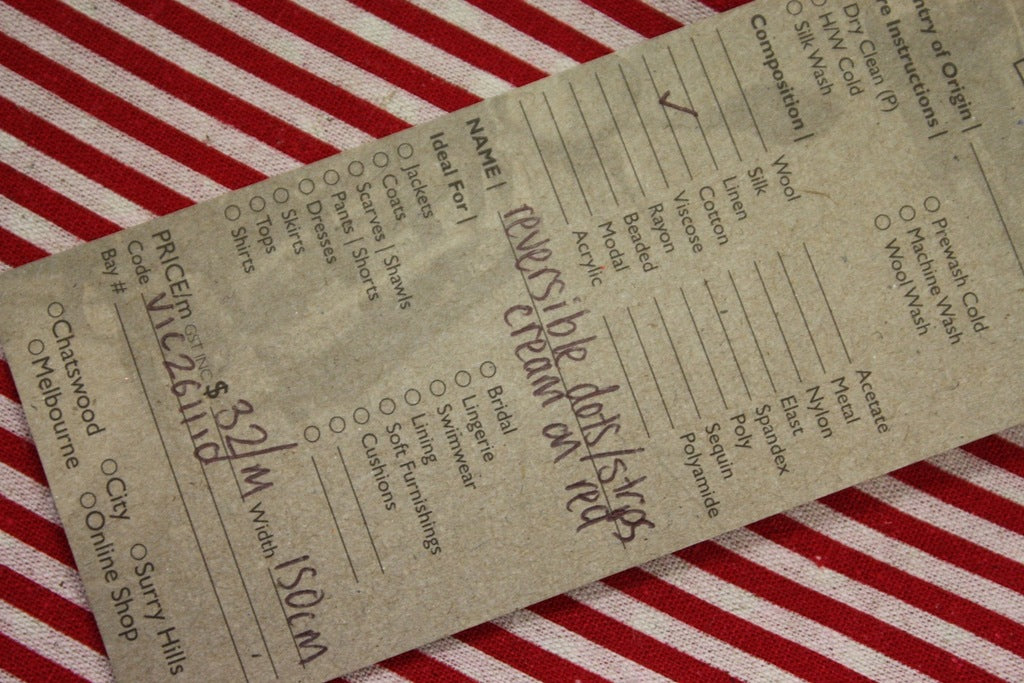 ntry of Origin |
re Instructions |
Dry Clean (P) Prewash Cold
H/W Cold Machine Wash
Silk Wash Wool Wash
Composition |
Wool Acetate
Silk Metal
Linen Nylon
✓ Cotton Elast
Viscose Spandex
Rayon Poly
Beaded Sequin
Modal Polyamide
Acrylic
NAME | reversible dots/strps
cream on red
Ideal For |
Jackets Bridal
Coats Lingerie
Scarves | Shawls Swimwear
Pants | Shorts Lining
Dresses Soft Furnishings
Skirts Cushions
Tops
Shirts
PRICE/m GST INC $ 32/m Width 150cm
Code
Bay #
Chatswood City Surry Hills
Melbourne Online Shop